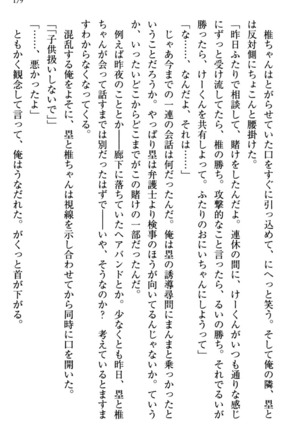 179
椎ちゃんはとがらせていた口をすぐに引っ込めて、にへっと笑う。そして俺の隣、塁と
は反対側にちょこんと腰掛けた。
「昨日ふたりで相談して、賭けをしたんだよ。連休の間に、けーくんがいつも通りな感じ
にずっと受け流してたら、椎の勝ち。攻撃的なこと言ったら、るいの勝ち。それでるいが
勝ったら、けーくんを共有しよって。ふたりのおにいちゃんにしようって」
「な……、なんだよ、それは……」
じゃあ今までの一連の会話は何だったんだ。俺は塁の誘導尋問にまんまと乗っかったと
いうことだろうか。やっぱり塁は弁護士より検事のほうが向いてるんじゃないか。ていう
か、いったいどこからどこまでがこの賭けの一部だったんだ。
例えば昨夜のこととか――廊下に落ちていたヘアバンドとか。少なくとも昨日、塁と椎
ちゃんが会って話すまでは別だったはずで――いや、そうなのか？　考えているとますま
すわからなくなってくる。
混乱する俺をよそに、塁と椎ちゃんは視線を示し合わせてから同時に口を開いた。
「「子供扱いしないで」」
「……、悪かったよ」
ともかく観念して言って、俺はうなだれた。がくっと首が下がる。